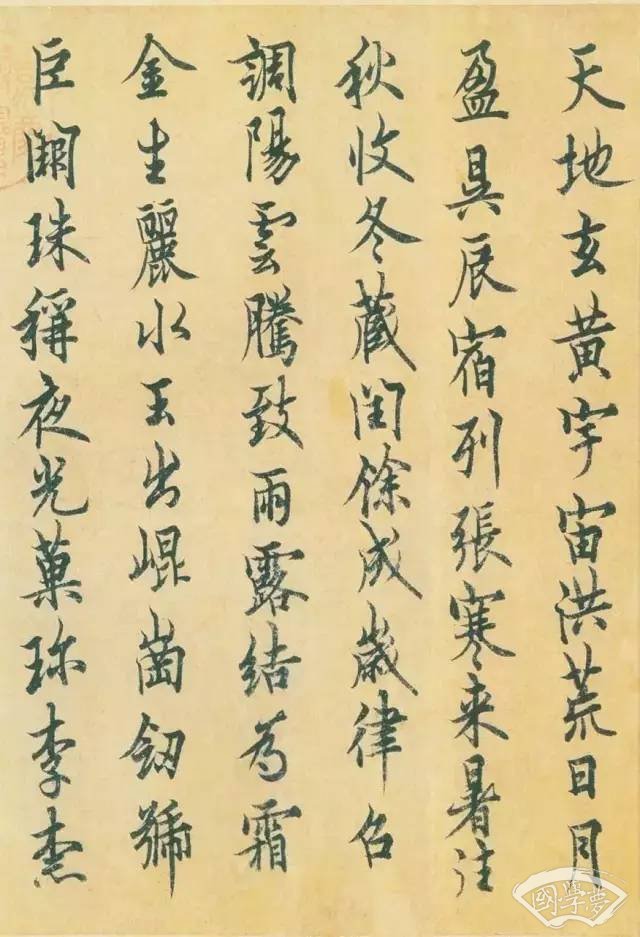 天地玄黃宇宙洪荒日月
盈昃辰宿列張寒来暑往
秋收冬藏閏餘成歲律召
調陽雲騰致雨露結為霜
金生麗水玉出崐崗劒號
巨闕珠稱夜光菓珎李柰
國學夢